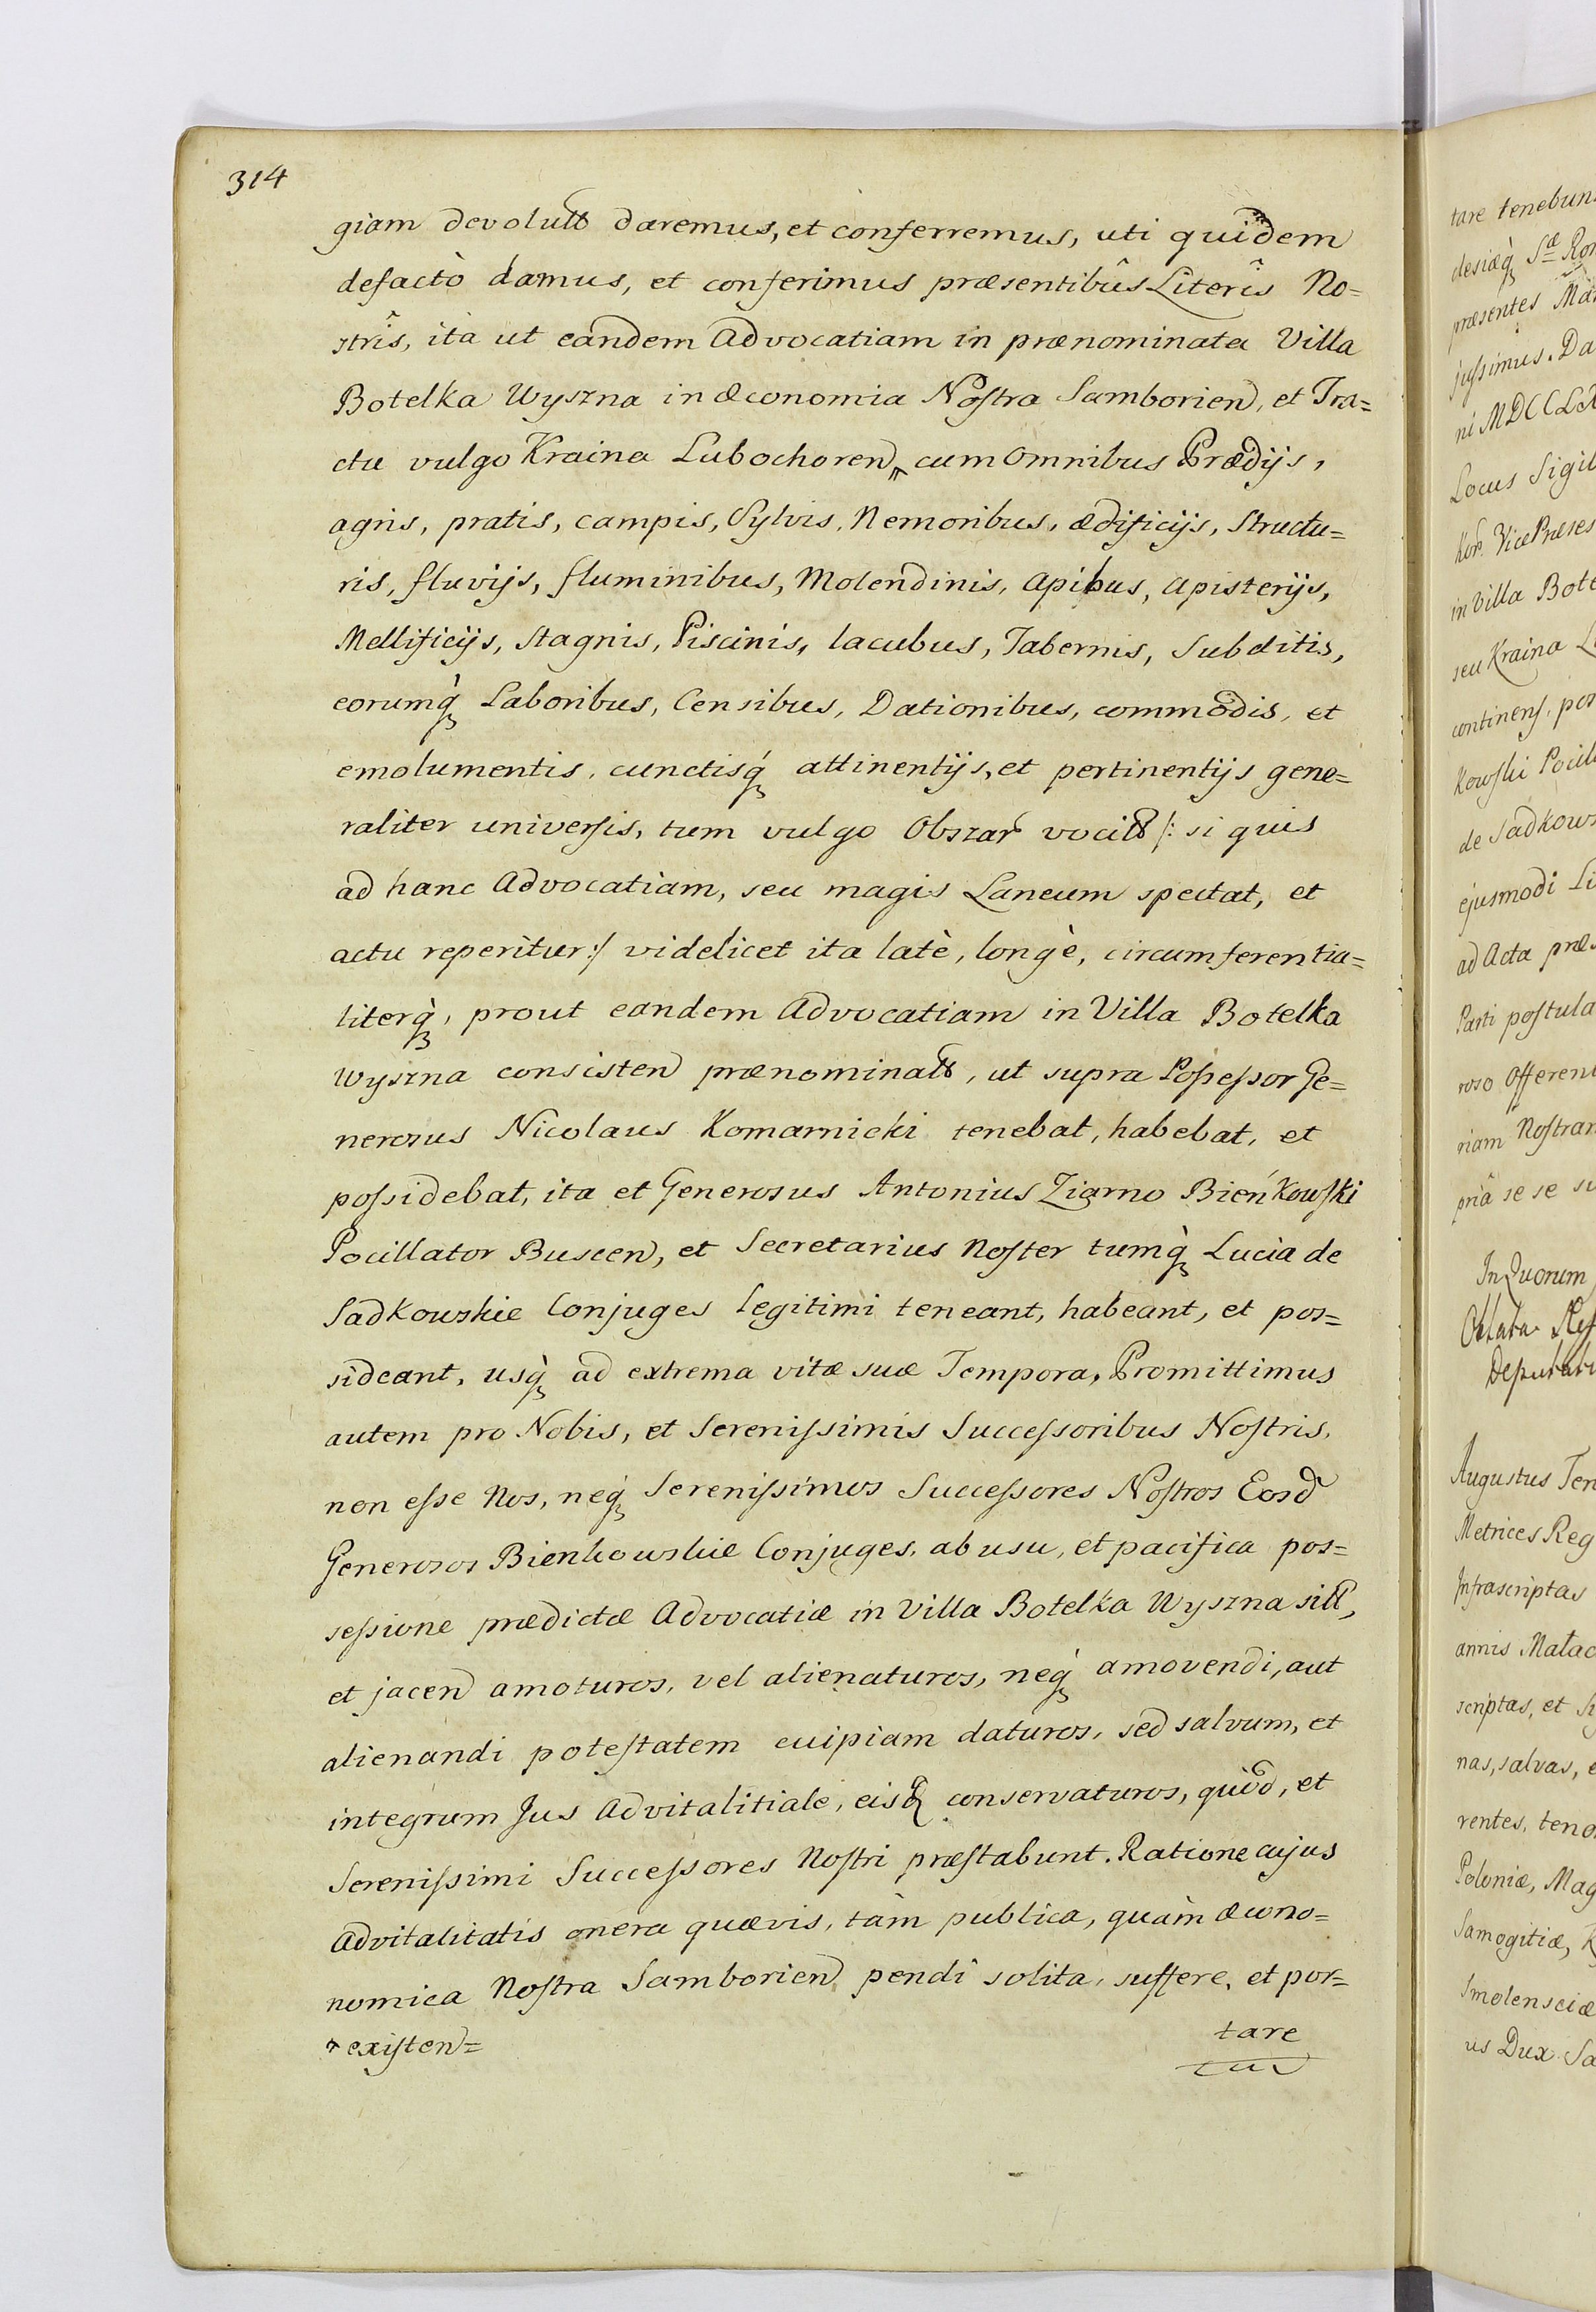 314
giam devolutt daremus, et conferremus, uti quidem
defactò damus, et conferimus præsentibûs Literîs No=
strîs, ita ut eandem Advocatiam in prænominata Villa
Botelka Wyszna in Œconomia Nostra Samborien, et Tra=
ctu vulgo Kraina Lubochoren cum omnibus Prædijs,
agris, pratis, campis, Sylvis, Nemoribus, ædificijs, Structu=
ris, fluvijs, fluminibus, Molendinis, apibus, apisterijs,
Mellificijs, Stagnis, Piscinis, lacubus, Tabernis, Subditis,
eorumq̀ Laboribus, Censibus, Dationibus, commodis, et
emolumentis, cunctisq́ attinentijs, et pertinentijs gene=
raliter universis, tum vulgo Obszar vocitt /: si quis
ad hanc Advocatiam, seu magis Laneum spectat, et
actu reperitur :/ videlicet ita latè, longè, circumferentia=
literq̀, prout eandem Advocatiam in Villa Botelka
Wyszna consisten prænominatt, ut supra Possessor Ge=
nerosus Nicolaus Komarnicki tenebat, habebat, et
possidebat, ita et Generosus Antonius Ziarno Bieńkowski
Pocillator Buscen, et Secretarius Noster tumq̀ Lucia de
Sadkowskie Conjuges legitimi teneant, habeant, et pos=
sideant, usq̀ ad extrema vitæ suæ Tempora, Promittimus
autem pro Nobis, et Serenissimis Successoribus Nostris,
non esse Nos, neq́ Serenissimos Successores Nostros Eosd
Generosos Bienkowskie Conjuges, ab usu, et pacifica pos=
sessione prædictæ Advocatiæ in Villa Botelka Wyszna sitt,
et jacen amoturos, vel alienaturos, neq̀ amovendi, aut
alienandi potestatem cuipiam daturos, sed salvum, et
integrum Jus Advitalitiale, eisq conservaturos, quod, et
Serenissimi Successores Nostri præstabunt. Ratione cujus
Advitalitatis onera quævis, tàm publica, quàm œcono=
nomica Nostra Samborien pendi solita, suffere, et por=
existen=
tare
tare tenebun
desiæq̀ Sæ Rom
præsentes Ma
jussimus. Da
ni MDCCLX
Locus Sigil
Kor. Vice Præses
in Villa Bote
seu Kraina L
continens, pos
Kowski Pocill
de Sadkows
ejusmodi Li
ad Acta præs
Parti postula
roso Offerent
riam Nostram
priâ se se su
In Quorum
Oblata
Deputat
Augustus Ter
Metrices Reg
Infrascriptas
annis Matac
scriptas, et
nas, salvas, e
rentes, teno
Poloniæ, Mag
Samogitiæ, K
Smolensciæ
us Dux Sa